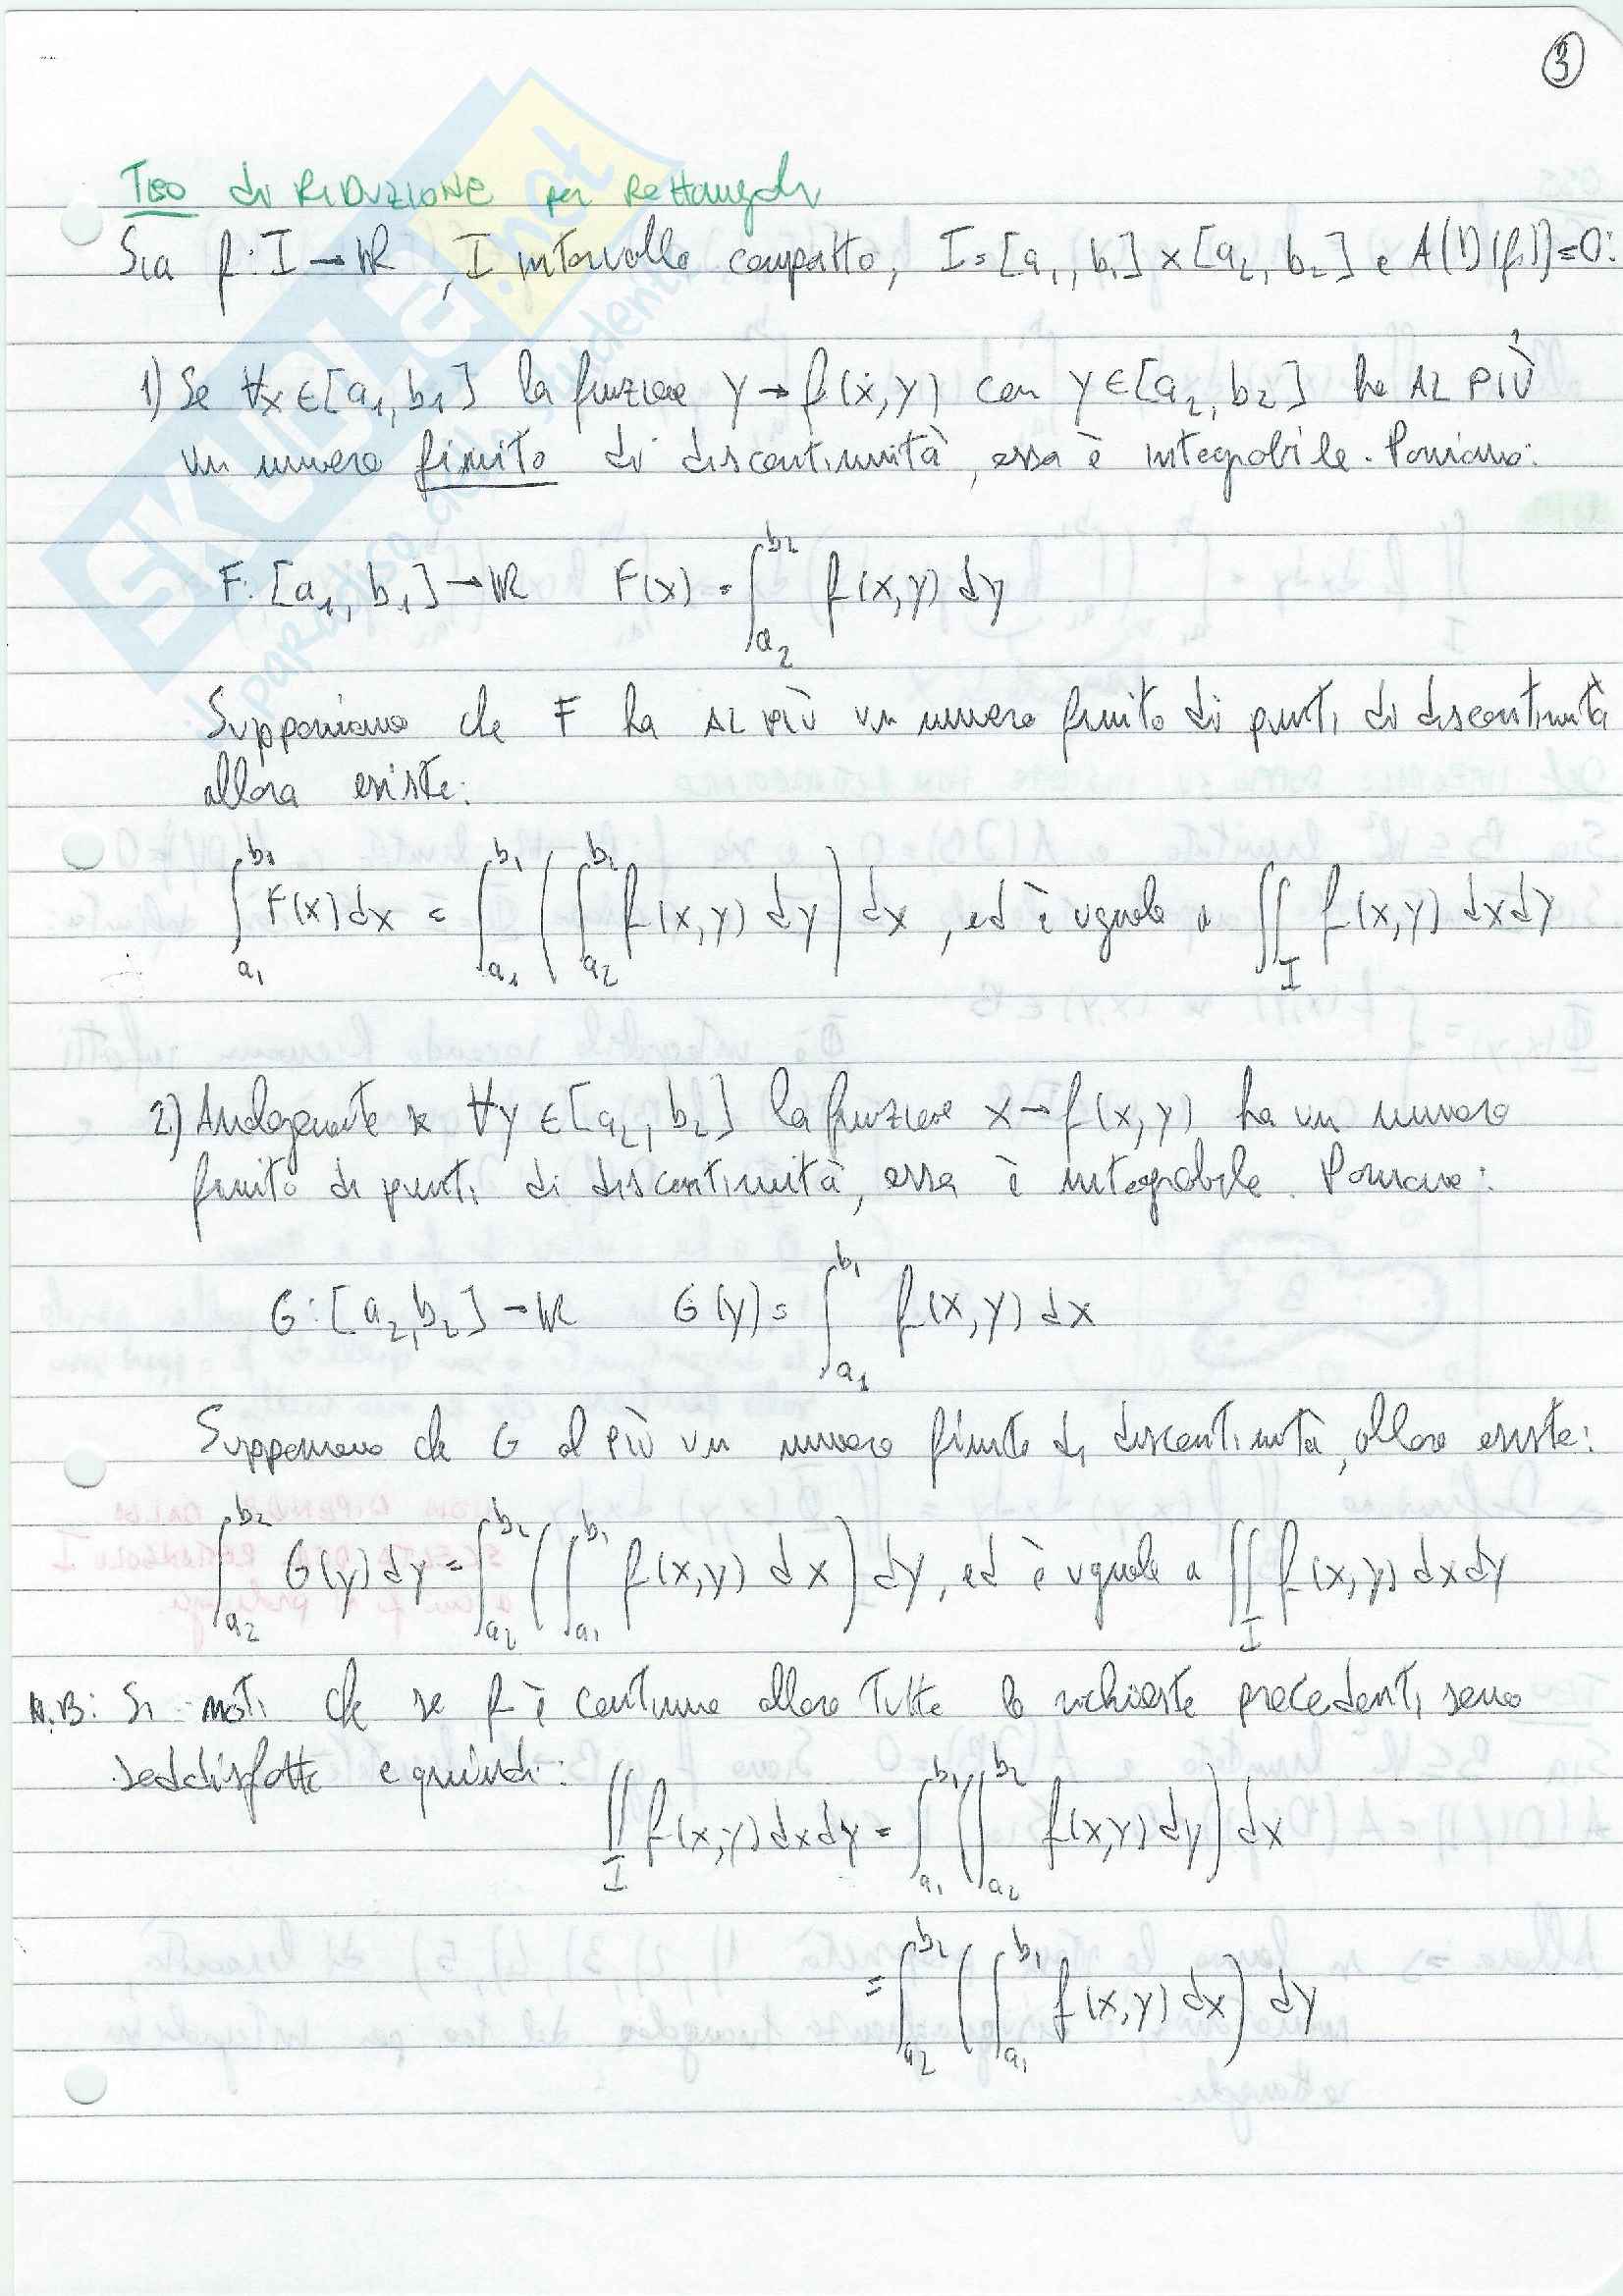 3
Teo di RIDUZIONE per Rettangoli
Sia f: I → ℝ, I intervallo compatto, I = [a₁, b₁] × [a₂, b₂] e A(D(f)) = 0:
1) Se ∀x ∈ [a₁, b₁] la funzione y → f(x, y) con y ∈ [a₂, b₂] ha AL PIÙ
un numero finito di discontinuità, essa è integrabile. Poniamo:
F: [a₁, b₁] → ℝ F(x) = ∫_{a₂}^{b₂} f(x, y) dy
Supponiamo che F ha AL PIÙ un numero finito di punti di discontinuità
allora esiste:
∫_{a₁}^{b₁} F(x) dx = ∫_{a₁}^{b₁} (∫_{a₂}^{b₂} f(x, y) dy) dx, ed è uguale a ∬_I f(x, y) dxdy
2) Analogamente se ∀y ∈ [a₂, b₂] la funzione x → f(x, y) ha un numero
finito di punti di discontinuità, essa è integrabile. Poniamo:
G: [a₂, b₂] → ℝ G(y) = ∫_{a₁}^{b₁} f(x, y) dx
Supponiamo che G al più un numero finito di discontinuità, allora esiste:
∫_{a₂}^{b₂} G(y) dy = ∫_{a₂}^{b₂} (∫_{a₁}^{b₁} f(x, y) dx) dy, ed è uguale a ∬_I f(x, y) dxdy
N.B: Si noti che se f è continua allora tutte le richieste precedenti sono
soddisfatte e quindi: ∬_I f(x, y) dxdy = ∫_{a₁}^{b₁} (∫_{a₂}^{b₂} f(x, y) dy) dx
= ∫_{a₂}^{b₂} (∫_{a₁}^{b₁} f(x, y) dx) dy
SKUOLA.net